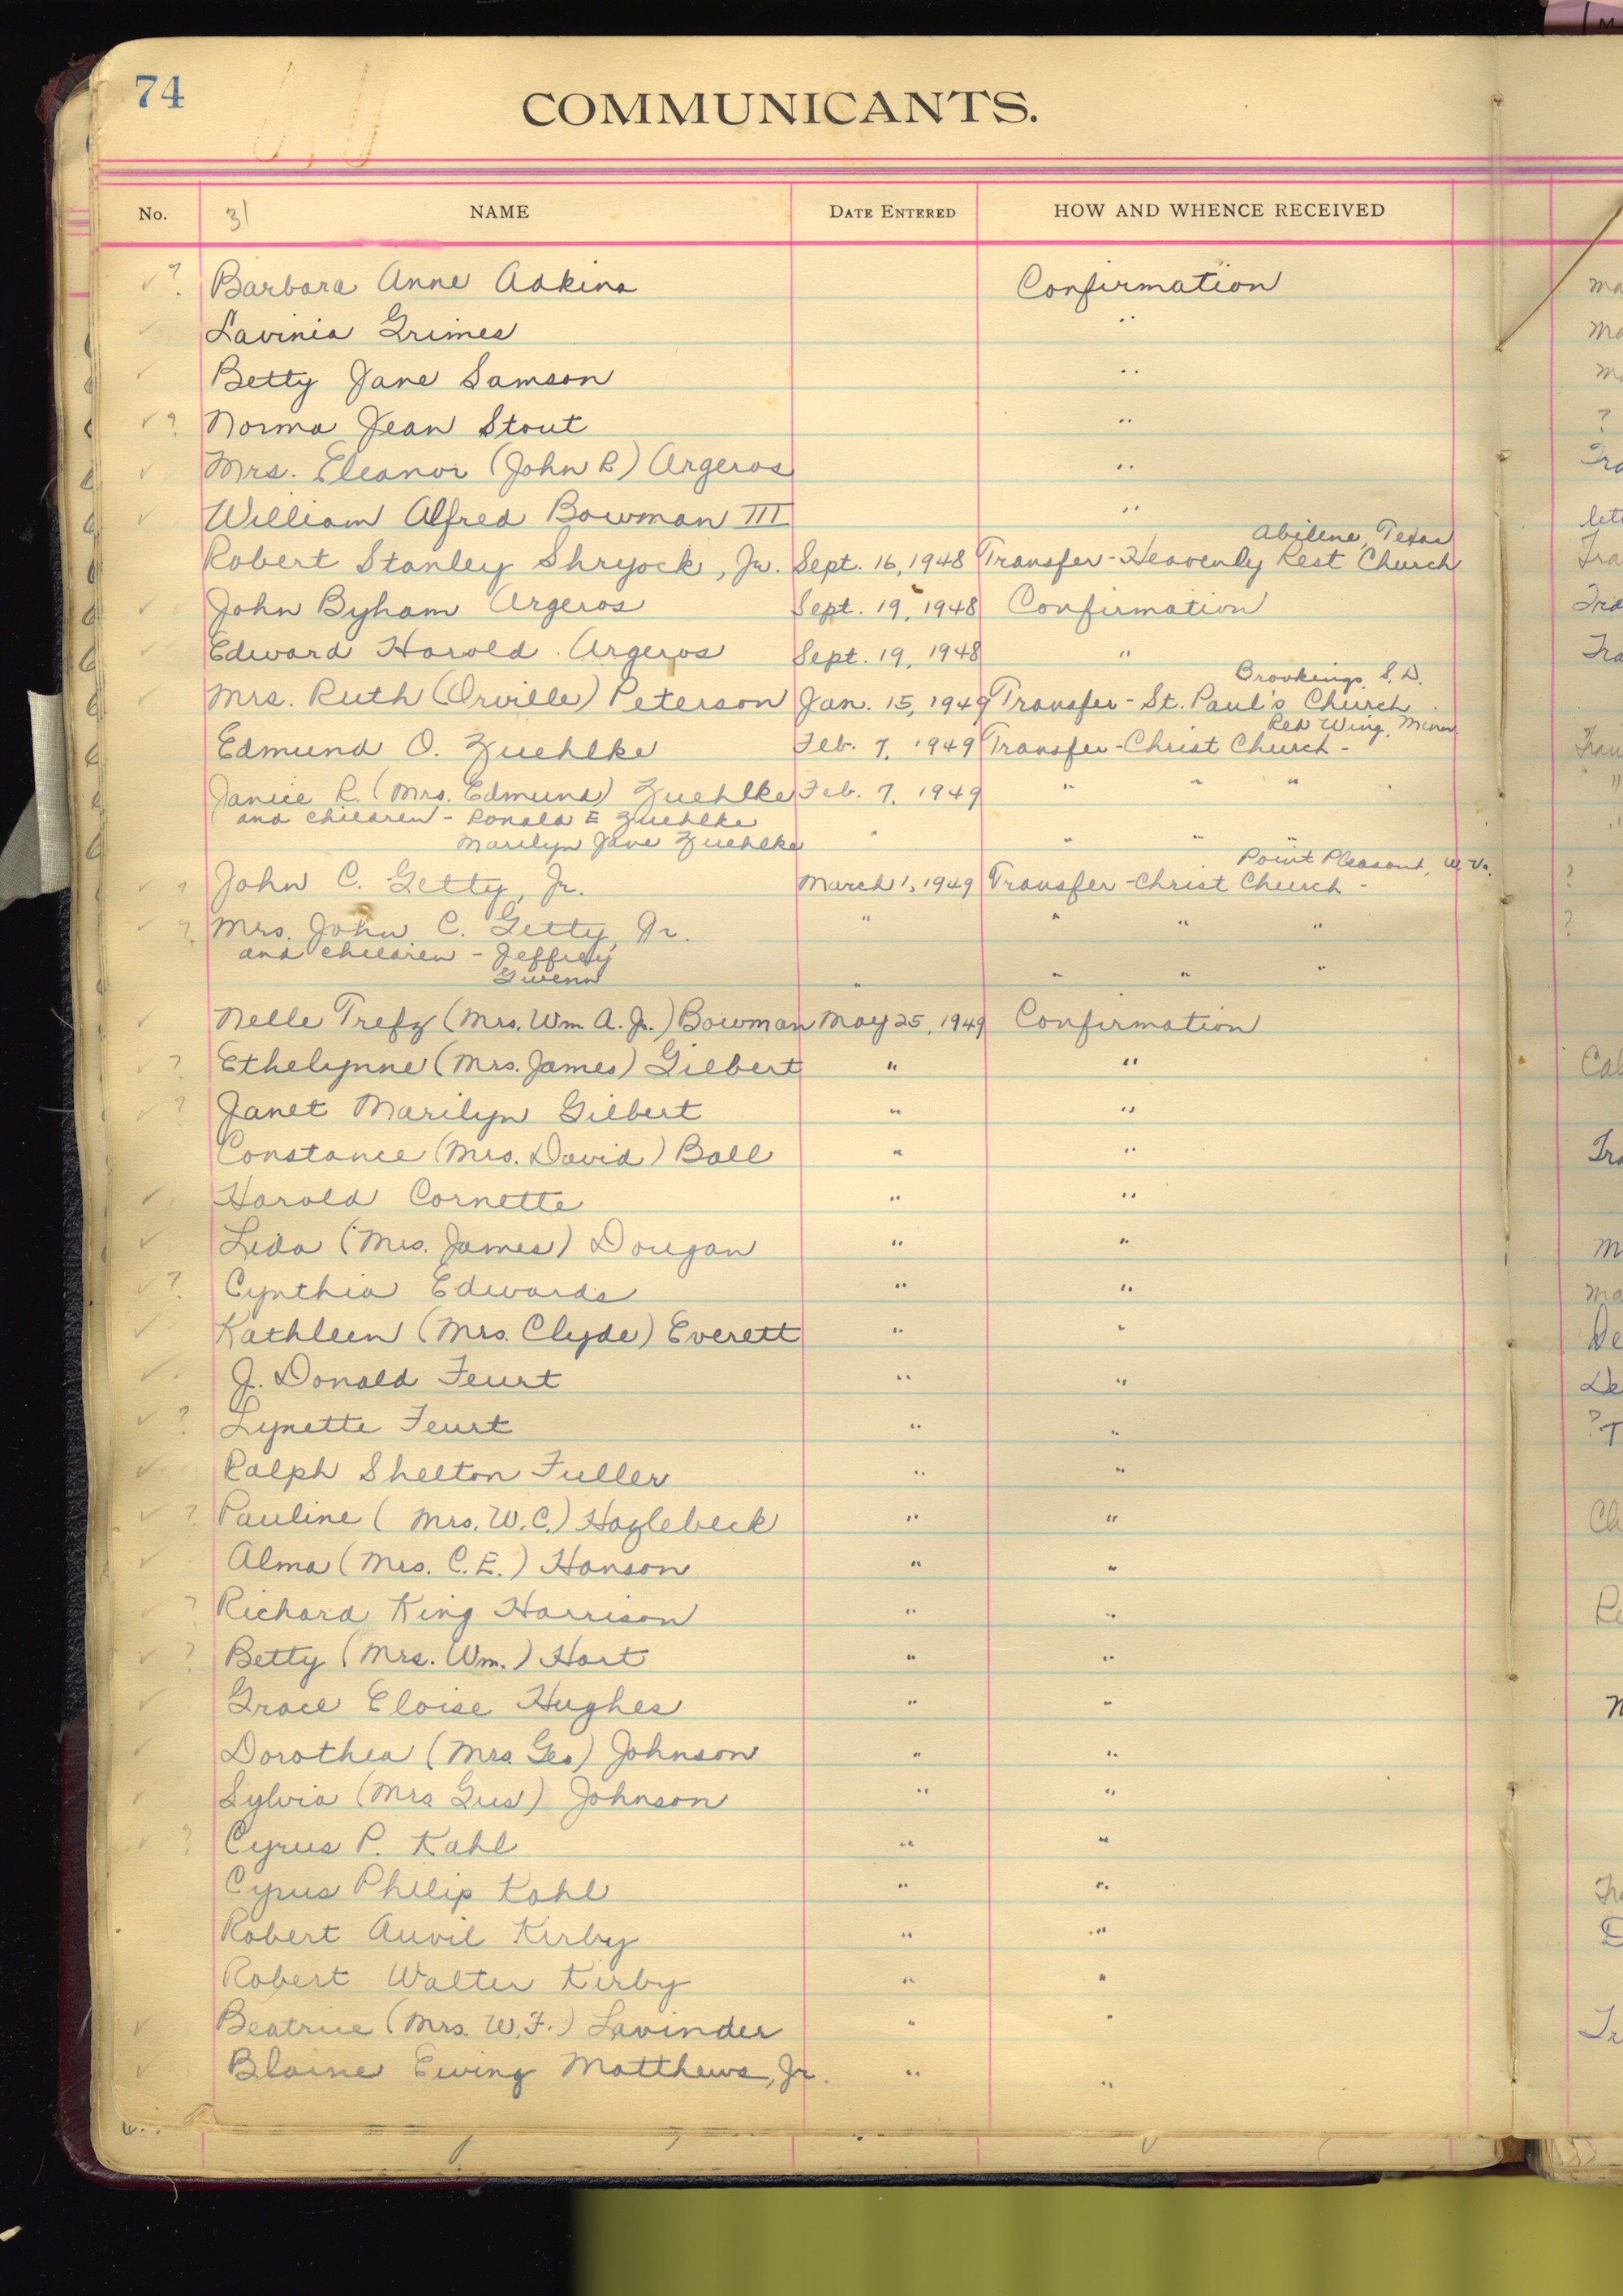 74
COMMUNICANTS.
No. 31 NAME DATE ENTERED HOW AND WHENCE RECEIVED
✓? Barbara Anne Adkins Confirmation
✓ Lavinia Grimes "
✓ Betty Jane Samson "
✓? Norma Jean Stout "
✓ Mrs. Eleanor (John R) Argeros "
✓ William Alfred Bowman III "
Abilene, Texas
Robert Stanley Shryock, Jr. Sept. 16, 1948 Transfer - Heavenly Rest Church
✓ John Byham Argeros Sept. 19, 1948 Confirmation
✓ Edward Harold Argeros Sept. 19, 1948 "
Brookings, S.D.
✓ Mrs. Ruth (Orville) Peterson Jan. 15, 1949 Transfer - St. Paul's Church
Red Wing, Minn
Edmund O. Zuehlke Feb. 7, 1949 Transfer - Christ Church -
Janice R. (Mrs. Edmund) Zuehlke Feb. 7, 1949 " " "
and children - Ronald E Zuehlke
Marilyn Jane Zuehlke " " " "
Point Pleasant, W. Va.
✓ ? John C. Getty, Jr. March 1, 1949 Transfer - Christ Church -
✓ ? Mrs. John C. Getty, Jr. " " " "
and children - Jeffrey
Gwenn " " " "
✓ Nelle Trefz (Mrs. Wm. A. Jr.) Bowman May 25, 1949 Confirmation
✓ ? Ethelynne (Mrs. James) Gilbert " "
✓ ? Janet Marilyn Gilbert " "
Constance (Mrs. David) Ball " "
✓ Harold Cornette " "
✓ Leda (Mrs. James) Dougan " "
✓? Cynthia Edwards " "
✓ Kathleen (Mrs. Clyde) Everett " "
✓ J. Donald Feurt " "
✓ ? Lynette Feurt " "
✓ Ralph Shelton Fuller " "
✓ ? Pauline (Mrs. W.C.) Hazlebeck " "
✓ Alma (Mrs. C.E.) Hanson " "
✓ ? Richard King Harrison " "
✓ ? Betty (Mrs. Wm.) Hart " "
✓ Grace Eloise Hughes " "
✓ Dorothea (Mrs. Geo) Johnson " "
✓ Sylvia (Mrs Gus) Johnson " "
✓ ? Cyrus P. Kahl " "
Cyrus Philip Kahl " "
Robert Auvil Kirby " "
Robert Walter Kirby " "
✓ Beatrice (Mrs. W.F.) Lavinder " "
✓ Blaine Ewing Matthews, Jr. " "